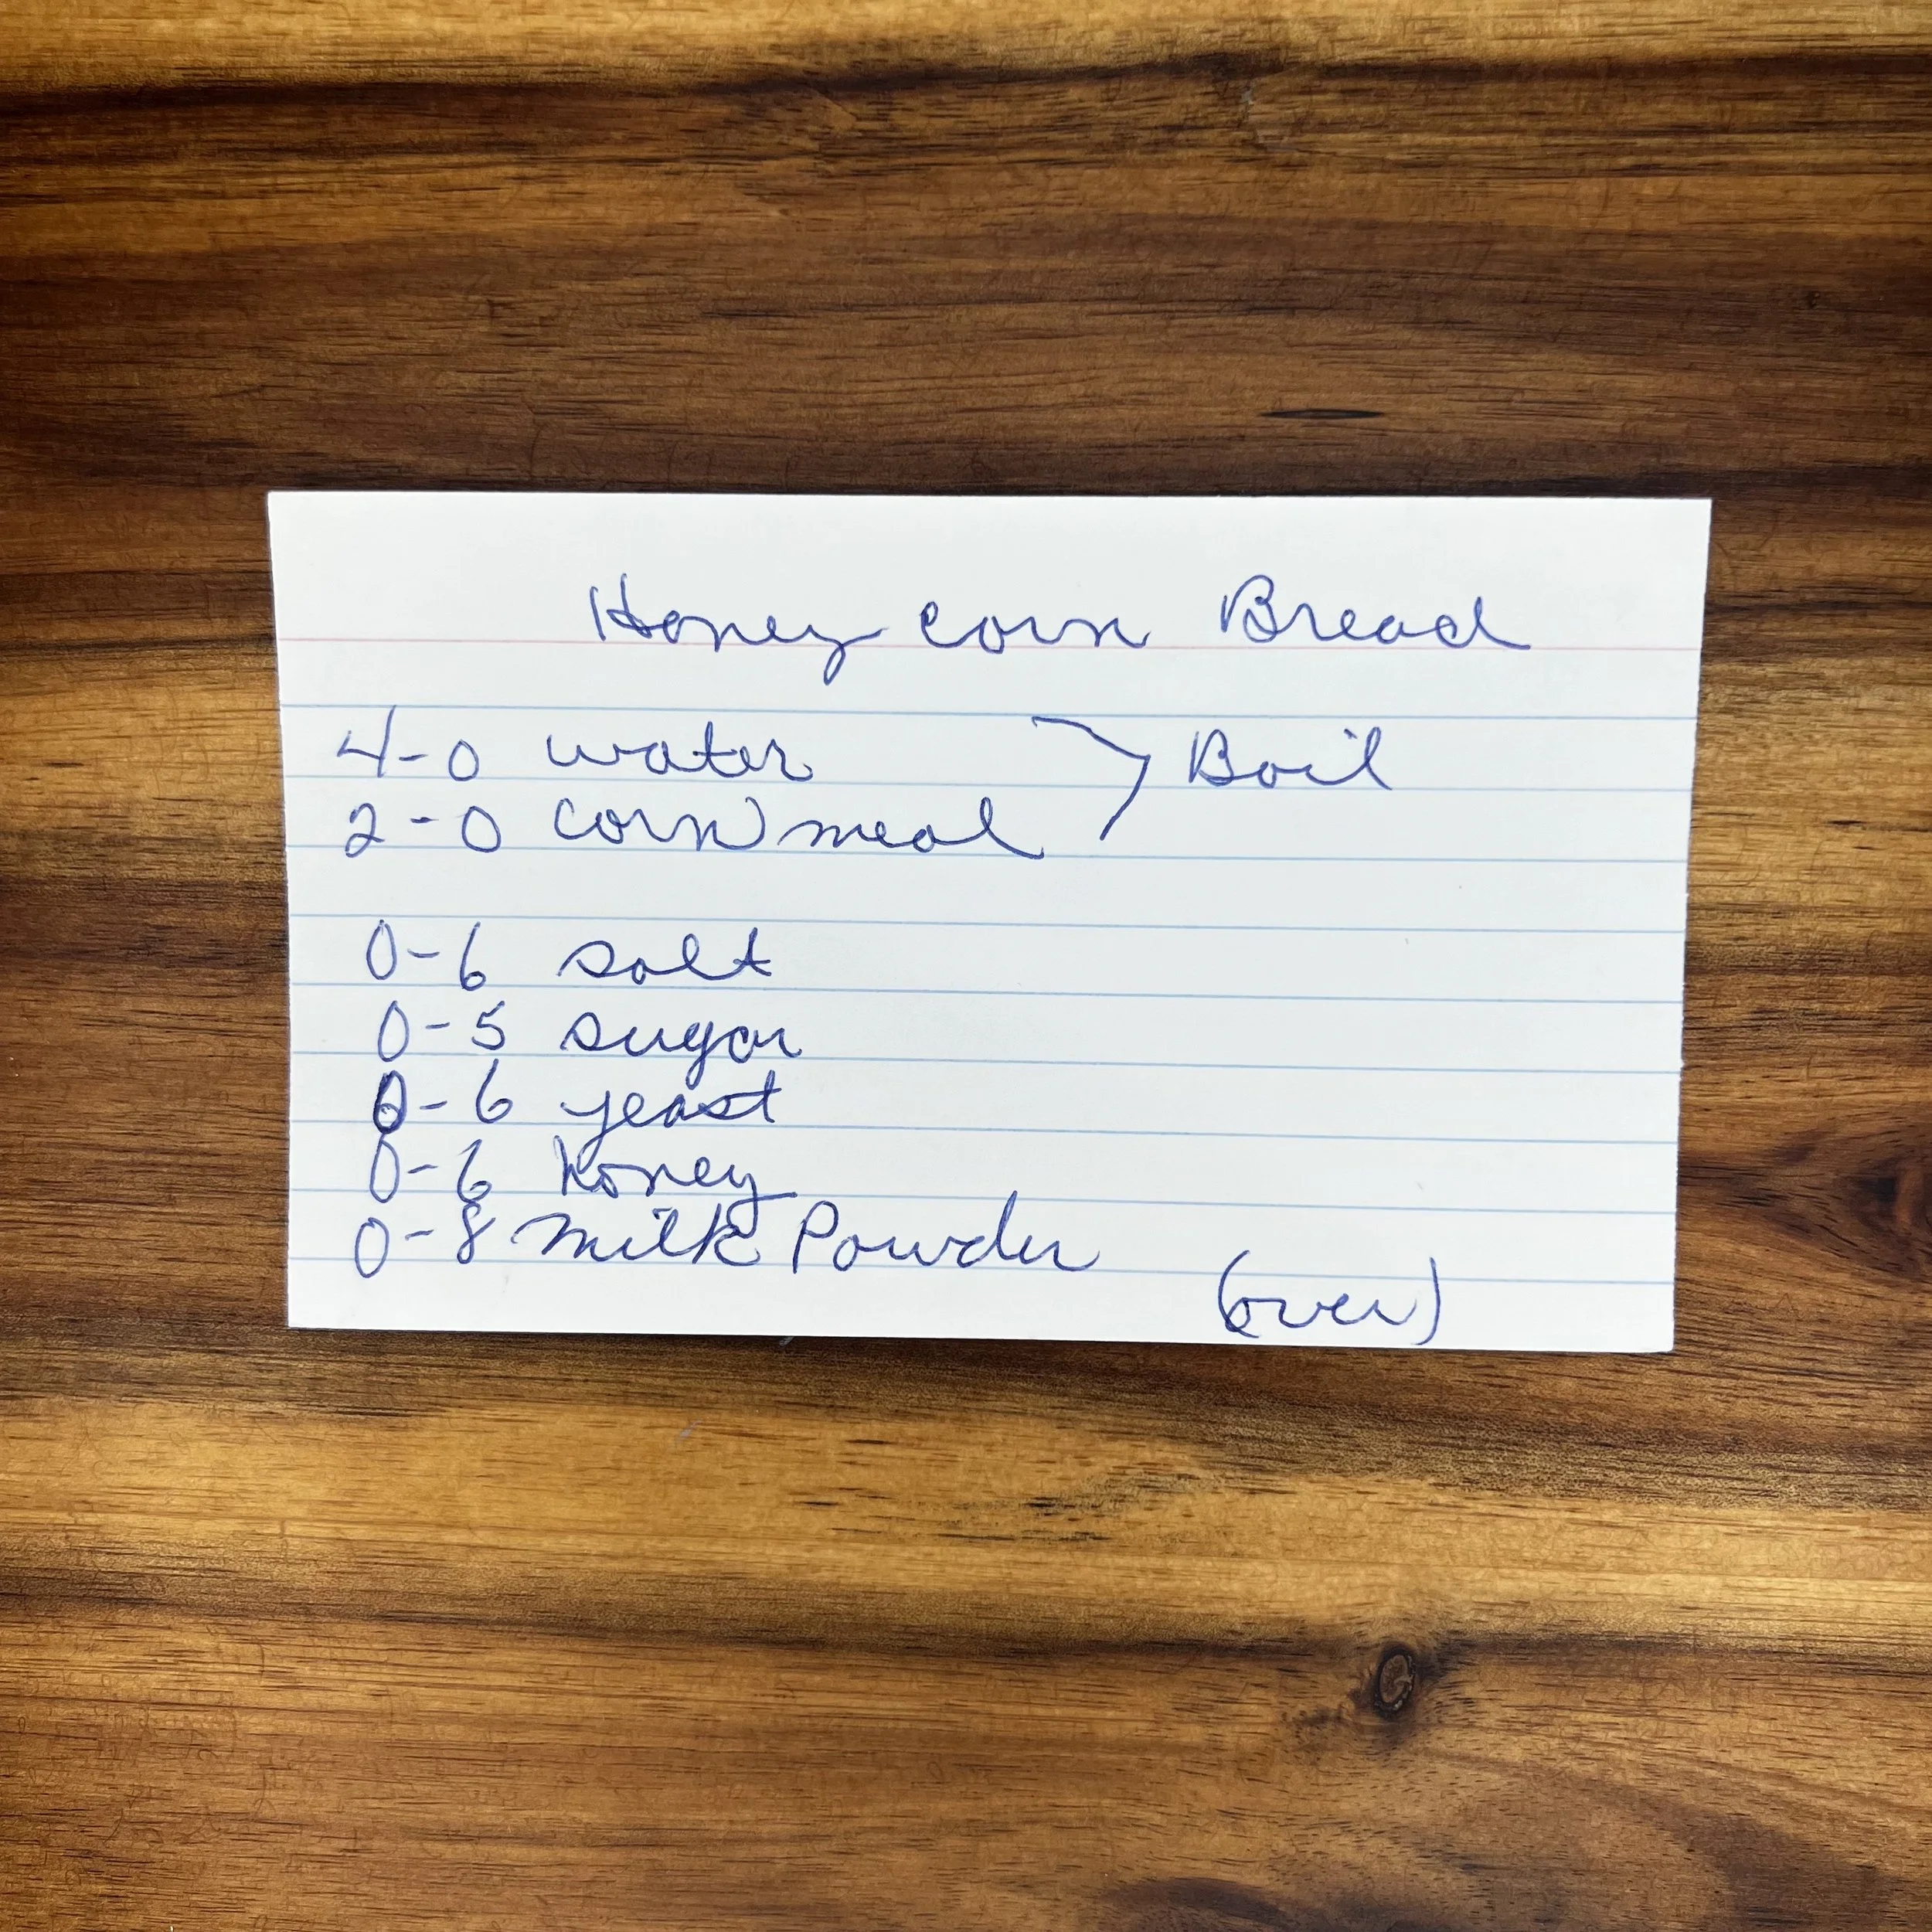 Honey corn Bread
4-0 water Boil
2-0 corn meal
0-6 salt
0-5 sugar
0-6 yeast
0-6 honey
0-8 milk Powder
(over)